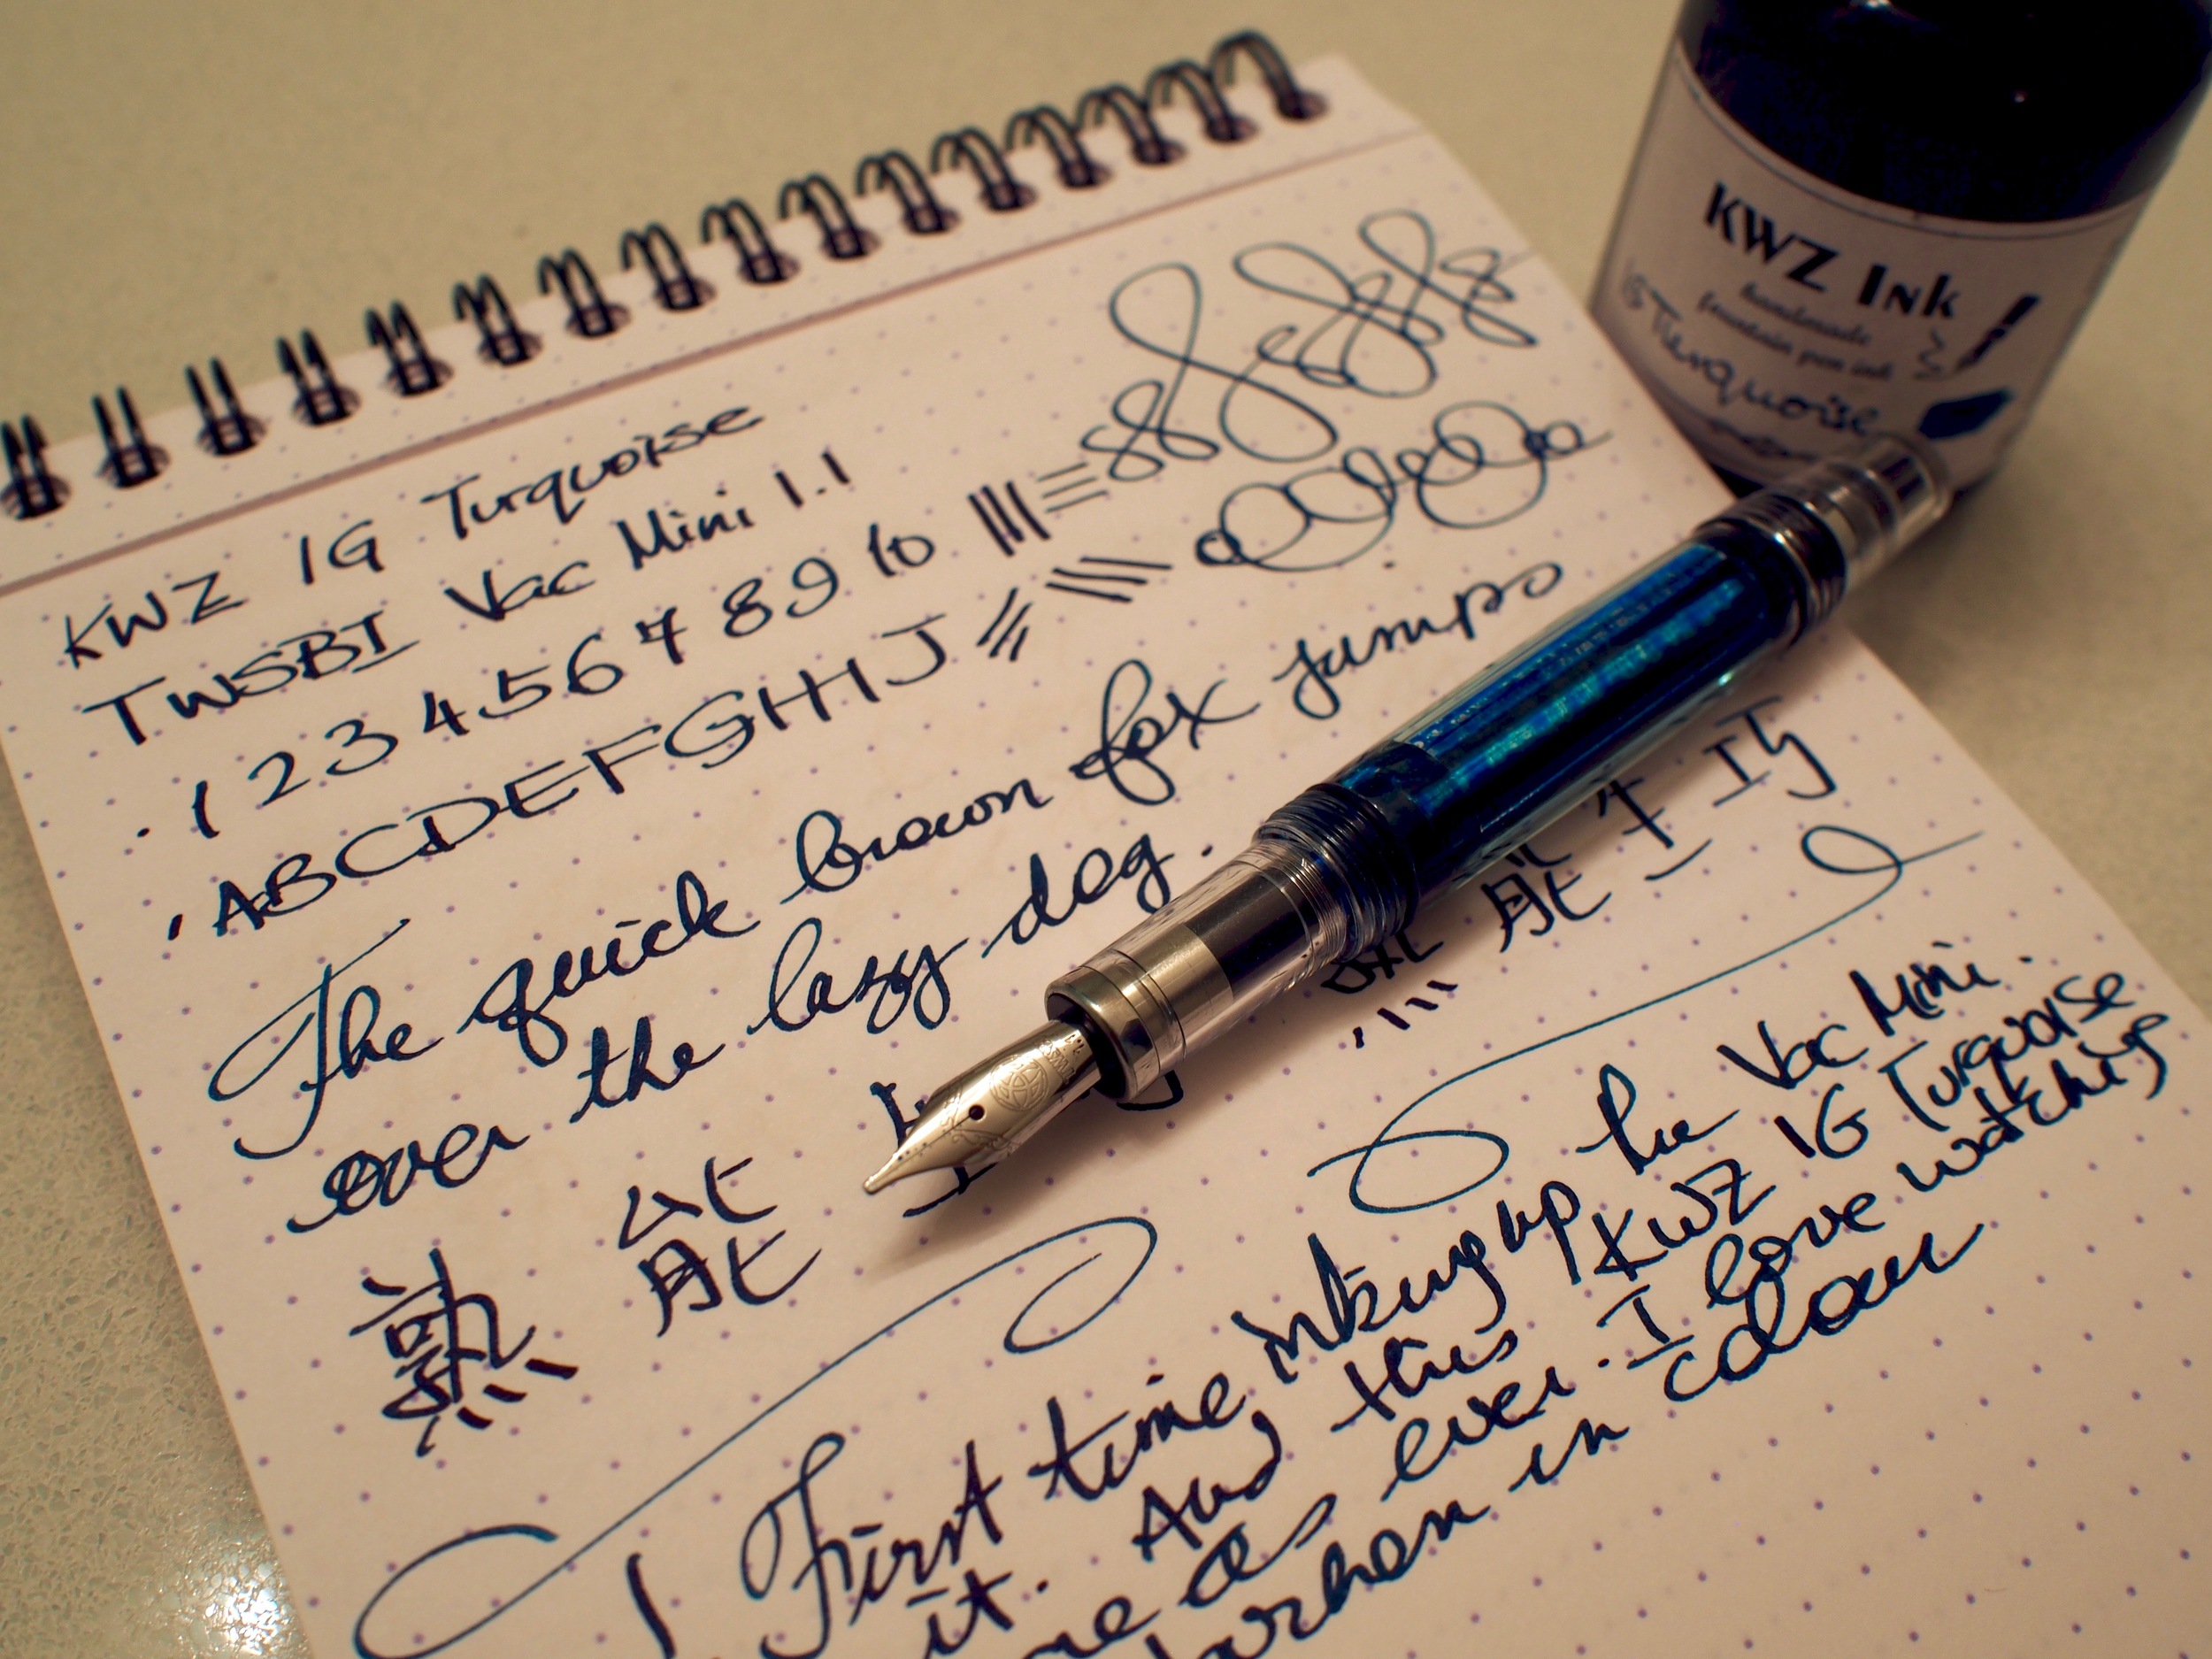 KWZ IG Turquoise
TWSBI Vac Mini 1.1
1 2 3 4 5 6 7 8 9 10
A B C D E F G H I J
The quick brown fox jumps
over the lazy dog.
熟 能 生 巧
熟 能 生 巧
First time inking up the Vac Mini.
it. And this KWZ IG Turquoise
as ever. I love watching
darken in colour
KWZ Ink
handmade
fountain pen ink
IG Turquoise